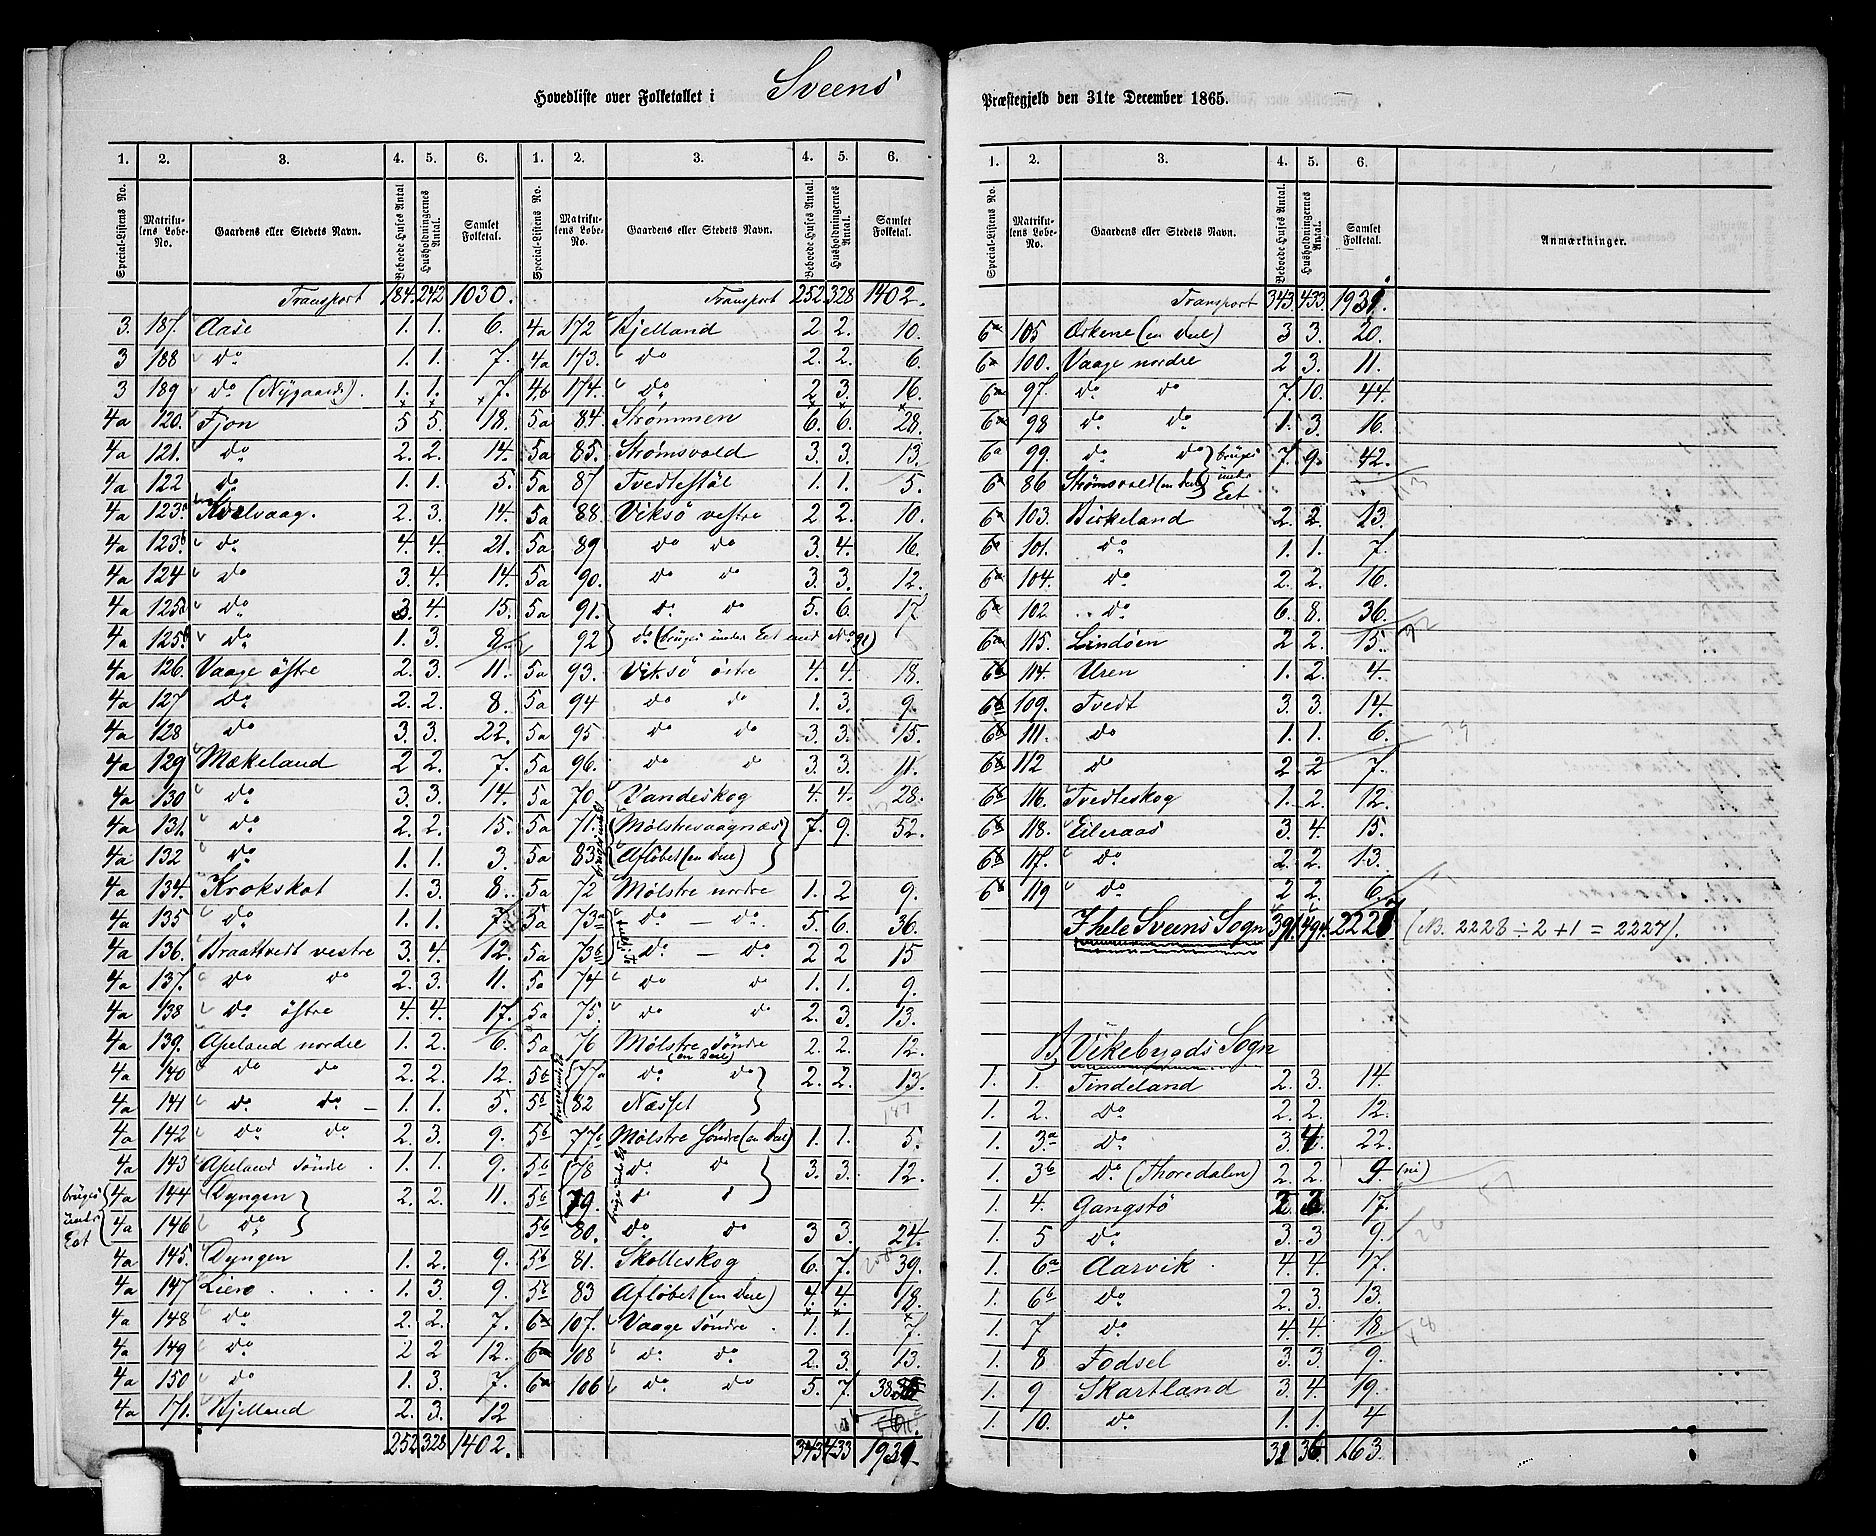 Hovedliste over Folketallet i Sveens Præstegjeld den 31te December 1865.
1. 2. 3. 4. 5. 6. 1. 2. 3. 4. 5. 6.
Special-Listens No. Matrikulens Løbe-No. Gaardens eller Stedets Navn. Beboede Huses Antal Husholdningernes Antal. Samlet Folketal. Special-Listens No. Matrikulens Løbe-No. Gaardens eller Stedets Navn. Beboede Huses Antal. Husholdningernes Antal. Samlet Folketal.
Transport 184. 242 1030.
3. 187. Aase 1. 1. 6.
3 188 do 1. 1. 7.
3 189 do (Nygaard). 1. 1. 7.
4a 120. Fjon 5 5. 18.
4a 121. do 2. 2. 14.
4a 122 do 1. 1. 5.
4a 123a Kvalvaag. 2. 3. 14.
4a 123b do 4. 4. 21.
4a 124 do 3. 4. 14.
4a 125a do 3. 4. 15.
4a 125b do 1. 3. 8.
4a 126. Vaage östre 2. 3. 11.
4a 127 do 2. 2. 8.
4a 128 do 3. 3. 22.
4a 129 Mækeland 2 2. 7.
4a 130 do 3. 3. 14.
4a 131. do 2. 2. 15.
4a 132 do 1. 1. 3.
4a 134. Krokskot 1. 3. 8.
4a 135 do 1. 1. 7.
4a 136. Braattvedt vestre 3. 4. 12.
4a 137. do do 2. 3. 11.
4a 138 do östre 4. 4. 17.
4a 139. Apeland nordre 1. 2. 6.
4a 140 do do 2. 2. 12.
4a 141 do do 1. 1. 5.
4a 142 do do 2. 3. 9.
4a 143 Apeland söndre 1. 1. 9.
bruges under Eet 4a 144 Dyngen 2. 2. 11.
4a 146 do
4a 145. Dyngen 1. 2. 9.
4a 147 Lien 1. 3. 9.
4a 148 do 2. 2. 7.
4a 149 do 2 2 12.
4a 150 do 1. 3. 7.
4a 171. Kjelland 2. 3. 12
252 328 1402.
Transport 252 328 1402.
4a 172 Kjelland 2 2. 10.
4a 173. do 2. 2. 6.
4b 174. do 2 3. 16.
5a 84. Strømmen 6. 6. 28.
5a 85. Strømsvold 3. 3. 13.
5a 87 Tvedtestöl 1. 1. 5.
5a 88. Viksö vestre 2 2. 10.
5a 89 do do 3. 4. 16.
5a 90. do do 3. 3. 12.
5a 91. do do 5. 6. 17
92 do (bruges under Eet med No 91)
5a 93. Viksö östre 4. 4. 18.
5a 94 do do 1. 3. 9.
5a 95 do do 3. 3. 15.
5a 96. do do 3. 3. 11.
5a 70. Vandeskog 4. 4. 28.
5a 71. Mølstrevaagnæs 7. 9. 52.
5a 83. Afløbet (en Deel)
5a 72 Mølstre nordre 1. 2 9.
5a 73a do — do. 5. 6. 36.
5a 73b do — do. 2 2 15
5a 74 do do 1. 1. 9.
5a 75. do do 2. 3. 13.
5a 76 Mølstre söndre 2. 2. 12.
5b 77a do (en Deel) do 2. 2. 13.
5b 82 Næsset
5b 77b Mølstre söndre (en Deel) 1. 1. 5.
5b 78 do do 3. 3. 12.
5b 79. d d
5b 80. do. do 3 3. 24.
5b 81. Skolleskog 6. 7. 39.
5b 83 Afløbet (en Deel) 4. 4. 18.
6a 107. Vaage söndre 1. 1. 7.
6a 108 do do. 2. 3. 13.
6a 106 do do 5. 7. 38
343 433 1931
1. 2. 3. 4. 5. 6.
Special-Listens No. Matrikulens Løbe-No. Gaardens eller Stedets Navn. Beboede Huses Antal. Husholdningernes Antal. Samlet Folketal. Anmærkninger.
Transport 343 433 1931.
6a 105 Ørkene (en Deel) 3 3. 20.
6a 100. Vaage nordre 2 3. 11.
6a 97. do do 7. 10. 44.
6a 98 do do 1. 3. 16.
6a 99. do do 7. 9. 42. bruges under Eet
6a 86 Strømsvold (en Deel) 113
6a 103. Birkeland 2. 2. 13.
6a 101. do 1. 1. 7.
6a 104. do 2. 2. 16.
6a 102 do 6. 8. 36.
6a 115. Lindöen 2 2. 15. 72
6b 114. Uren 1. 2. 4.
6b 109. Tvedt 3. 3. 14.
6b 111. do 1. 1. 6. 39
6b 112 do 2. 2 7.
6b 116. Tvedteskog 1. 2. 12.
6b 118. Eileraas 3. 4. 15.
6b 117. do 2. 2. 13.
6b 119 do 2 2. 6.
I hele Sveens Sogn 391. 494. 2227 (NB. 2228 ÷ 2 + 1 = 2227).
B) Vikebygds Sogn
1. 1. Tindeland 2. 3. 14.
1. 2. do 2. 2. 12.
1. 3a do 3. 4. 22.
1. 3b do (Thoredalen) 2. 2. 9. (ni)
1. 4. Gangstö 2. 3. 17. 57
1. 5 do 3. 3 9. 26
1. 6a Aarvik 4. 4. 17.
1. 6b do 2. 3. 13.
1. 7 do 4. 4. 18. 48
1. 8 Fodsel 3. 3. 9.
1. 9 Skartland 3. 4. 19.
1. 10. do 1. 1. 4
31 36 163.